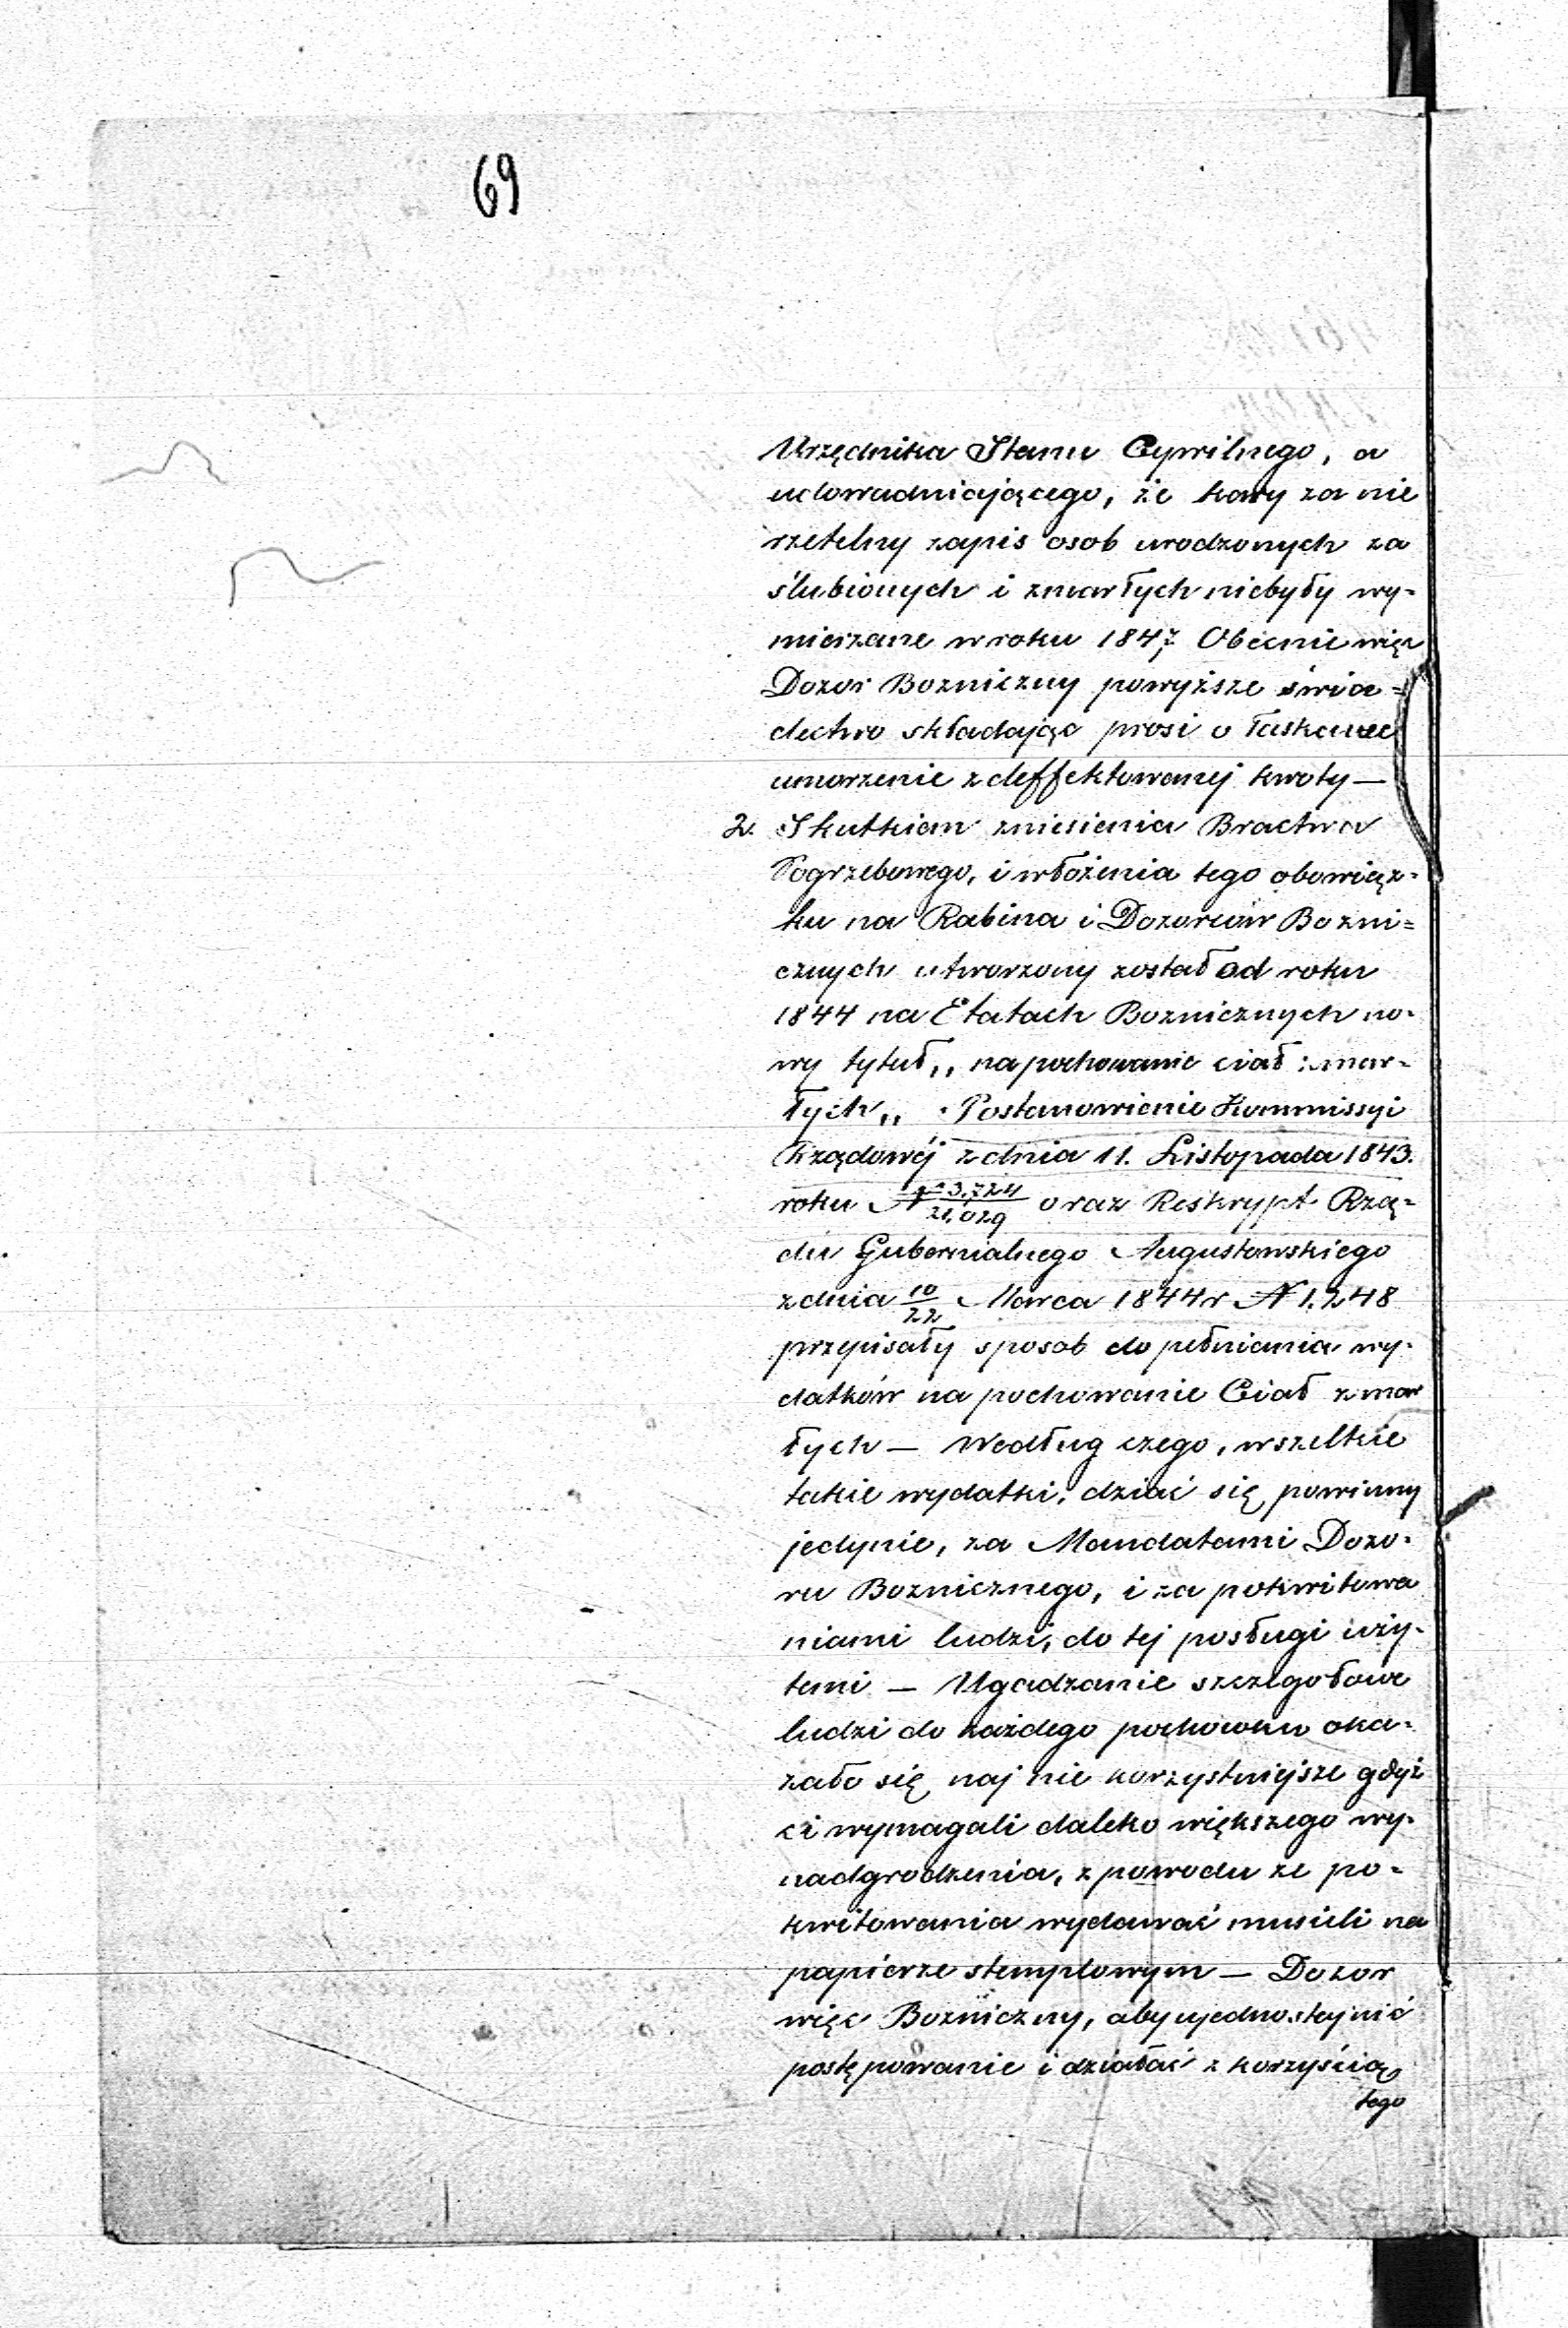 69
Urzędnika Stanu Cywilnego, a
udowadniającego, że kary za nie
rzetelny zapis osob urodzonych za
ślubionych i zmarłych niebyły wy-
mierzane w roku 1847. Obecnie więc
Dozor Bozniczny powyższe świa=
dectwo składając prosi o łaskawe
umorzenie zdeffektowanej kwoty —
2. Skutkiem zniesienia Bractwa
Pogrzebowego, i włożenia tego obowiąz-
ku na Rabina i Dozorców Bozni=
cznych utworzony został od roku
1844 na Etatach Bozniczych no-
wy tytuł „ na pochowanie ciał zmar-
łych „ Postanowienie Kommissyi
Rządowéj z dnia 11. Listopada 1843.
roku № 3,724/21,029 oraz Reskrypt Rzą-
du Gubernialnego Augustowskiego
z dnia 10/22 Marca 1844 r N 1.248
przypisały sposob dopełniania wy-
datków na pochowanie Ciał zmar
łych — Według czego, wszelkie
takie wydatki, dziać się powinny
jedynie, za Mandatami Dozo-
ru Boznicznego, i za pokwitowa
niami ludzi, do tej posługi uży-
temi — Ugadzanie szczegołowe
ludzi do każdego pochowku oka-
zało się naj nie korzystniejsze gdyż
ci wymagali daleko większego wy-
nadgrodzenia, z powodu ze po-
kwitowania wydawać musieli na
papierze stemplowym — Dozor
więc Bozniczny, aby ujednostajnić
postępowanie i działać z korzyścią
tego